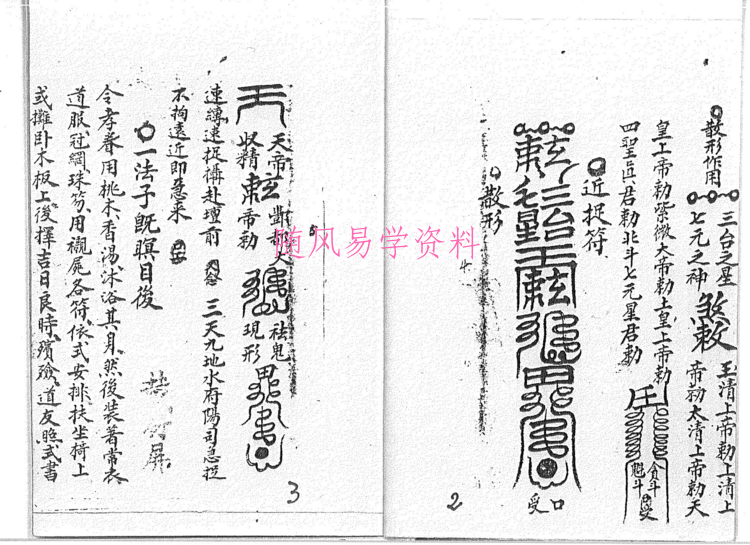 散形作用
三台之星 玉清上帝勅上清上
七元之神 煞勅 帝勅太清上帝勅天
皇上帝勅紫微大帝勅土皇上帝勅
四聖真君勅北斗七元星君勅
貪斗
魁斗
受
近捉符
口
受
散形
2
4
天帝
收精
帝勅
祛鬼
現形
速縛速捉攝赴壇前
三天九地水府陽司急捉
不拘遠近即急来
一法子既瞑目後
令孝眷用桃木香湯沐浴其身然後装著常衣
道服冠綢珠笏用襯屍各符依式安排扶坐椅上
或攤卧木板上後擇吉日良時殯殮道友照式書
3
随风易学资料